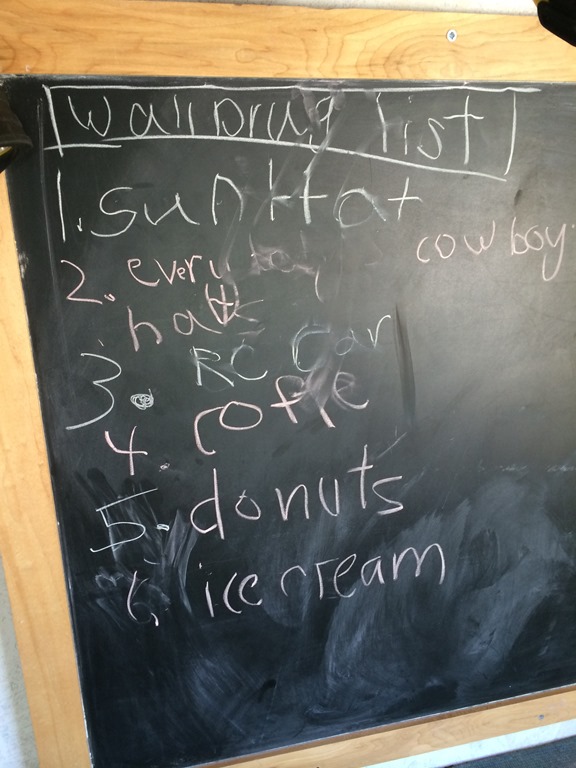 wall Drug list
1. sun Hat
2. every day cowboy
hat
3. RC Car
4. coffe
5. donuts
6. ice cream